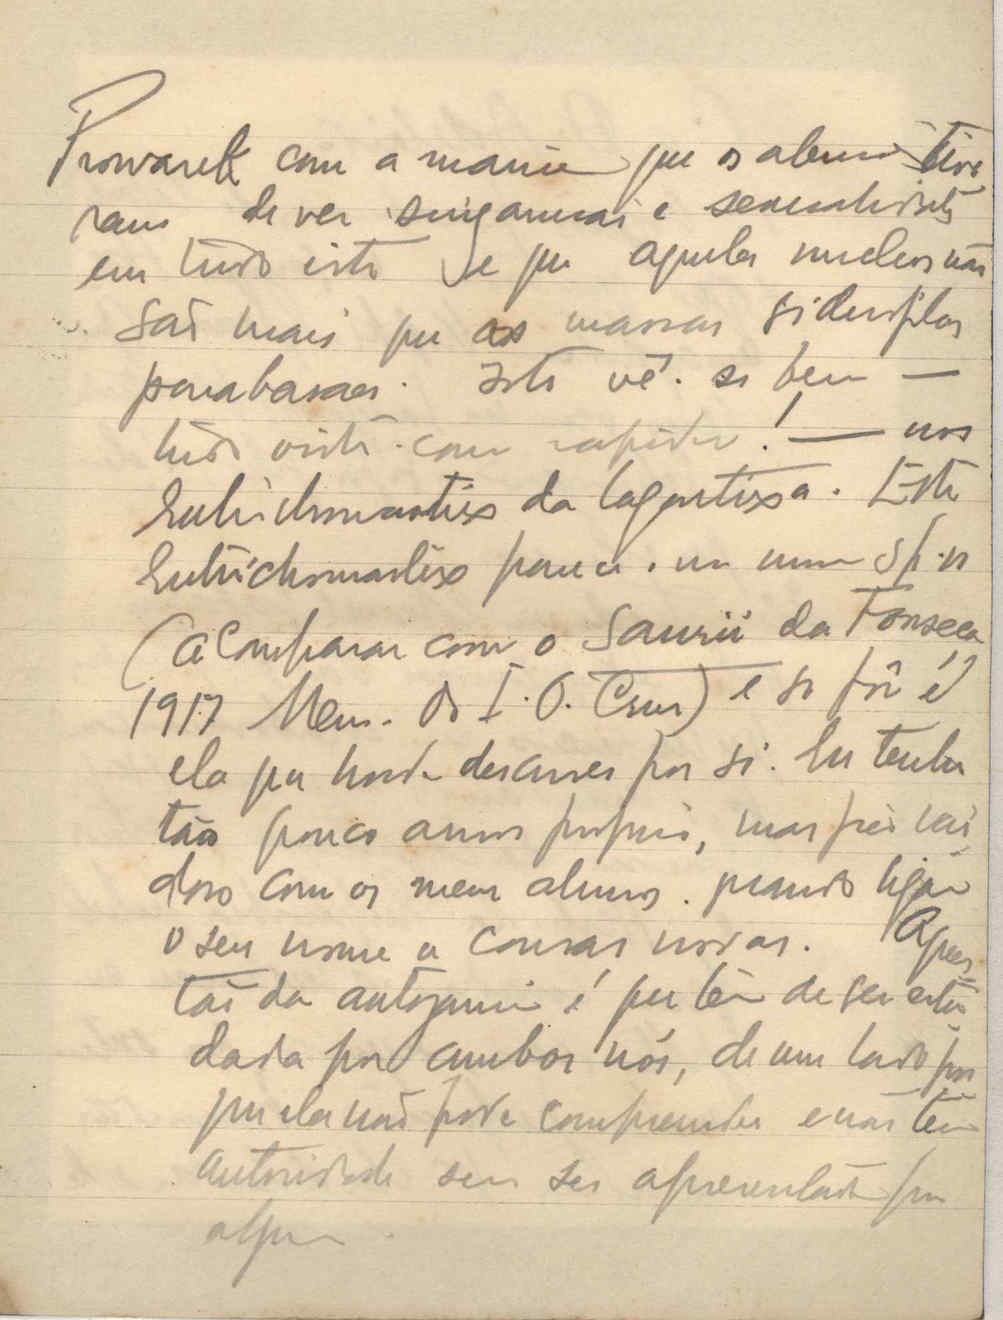 Prowazek com a mania que os alemães tive
ram de ver singamias e sexualidades
em tudo isto e que aqueles nucleos não
são mais que as massas siderofilas
parabasaes. Isto vê-se bem —
tudo visto com rapidez! — nos
Eutrichomastix da lagartixa. Este
Eutrichomastix parece um sp. n
(a comparar com o Saurii da Fonseca
1917 Mem. do I. O. Cruz) e se fôr é
ela que hade descrever por si. Eu tenho
tão pouco amor proprio, mas vai
doso com os meus alunos quando ligam
o seu nome a cousas novas. A ques
tão da autogamia é que tem de ser estu
dada por ambos nós, de um lado por
que ela não pode compreender e não tem
autoridade sem ser apresentada por
alguem.